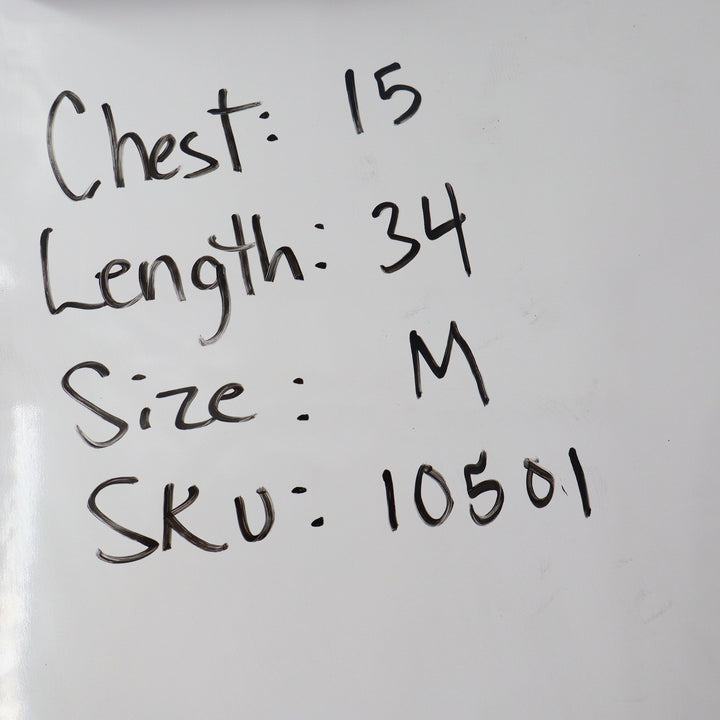 Chest: 15
Length: 34
Size: M
SKU: 10501